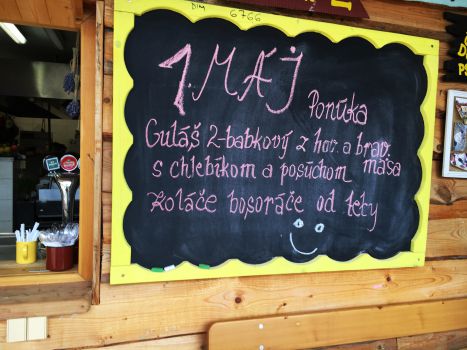 DIM 6766
1. MÁJ
Ponúka
Guláš 2-babkový z hov. a brav.
s chlebíkom a posúchom mäsa
Koláče bosoráče od tety